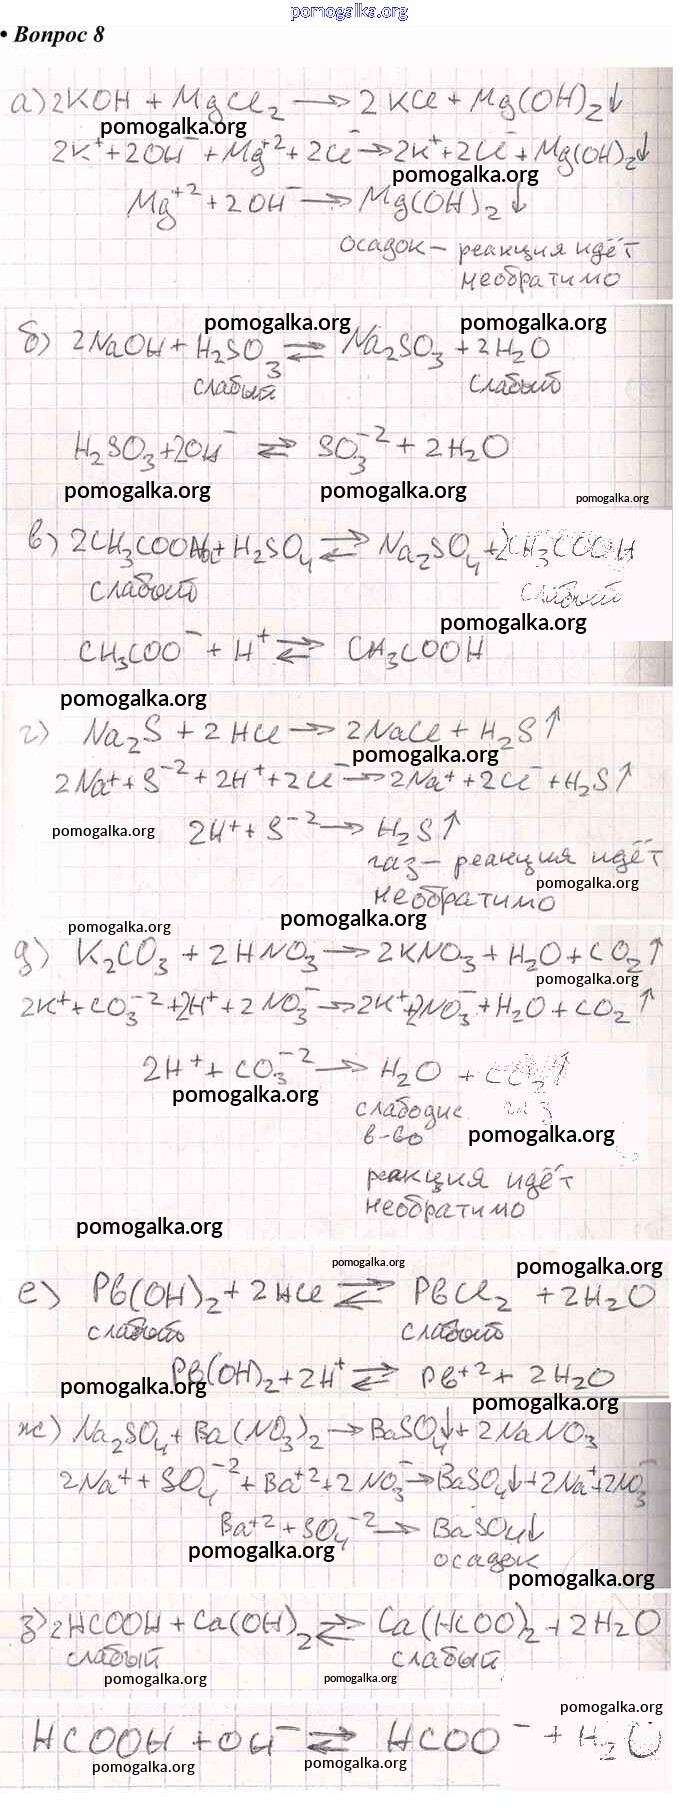 pomogalka.org
• Вопрос 8
а) 2KOH + MgCl₂ → 2KCl + Mg(OH)₂↓
pomogalka.org
2K⁺ + 2OH⁻ + Mg⁺² + 2Cl⁻ → 2K⁺ + 2Cl⁻ + Mg(OH)₂↓
pomogalka.org
Mg⁺² + 2OH⁻ → Mg(OH)₂↓
осадок – реакция идёт
необратимо
pomogalka.org pomogalka.org
б) 2NaOH + H₂SO₃ ⇄ Na₂SO₃ + 2H₂O
слабый слабый
H₂SO₃ + 2OH⁻ ⇄ SO₃⁻² + 2H₂O
pomogalka.org pomogalka.org pomogalka.org
в) 2CH₃COONa + H₂SO₄ ⇄ Na₂SO₄ + 2CH₃COOH
слабый слабый
pomogalka.org
CH₃COO⁻ + H⁺ ⇄ CH₃COOH
pomogalka.org
г) Na₂S + 2HCl → 2NaCl + H₂S↑
pomogalka.org
2Na⁺ + S⁻² + 2H⁺ + 2Cl⁻ → 2Na⁺ + 2Cl⁻ + H₂S↑
pomogalka.org
2H⁺ + S⁻² → H₂S↑
газ – реакция идёт
pomogalka.org
необратимо
pomogalka.org
pomogalka.org
д) K₂CO₃ + 2HNO₃ → 2KNO₃ + H₂O + CO₂↑
pomogalka.org
2K⁺ + CO₃⁻² + 2H⁺ + 2NO₃⁻ → 2K⁺ + 2NO₃⁻ + H₂O + CO₂↑
2H⁺ + CO₃⁻² → H₂O + CO₂↑
pomogalka.org
слабодис газ
в-во
pomogalka.org
реакция идёт
необратимо
pomogalka.org
pomogalka.org pomogalka.org
е) Pb(OH)₂ + 2HCl ⇄ PbCl₂ + 2H₂O
слабый слабый
Pb(OH)₂ + 2H⁺ ⇄ Pb⁺² + 2H₂O
pomogalka.org
pomogalka.org
ж) Na₂SO₄ + Ba(NO₃)₂ → BaSO₄↓ + 2NaNO₃
2Na⁺ + SO₄⁻² + Ba⁺² + 2NO₃⁻ → BaSO₄↓ + 2Na⁺ + 2NO₃⁻
Ba⁺² + SO₄⁻² → BaSO₄↓
pomogalka.org
осадок
pomogalka.org
з) 2HCOOH + Ca(OH)₂ ⇄ Ca(HCOO)₂ + 2H₂O
слабый слабый
pomogalka.org pomogalka.org
pomogalka.org
HCOOH + OH⁻ ⇄ HCOO⁻ + H₂O
pomogalka.org pomogalka.org